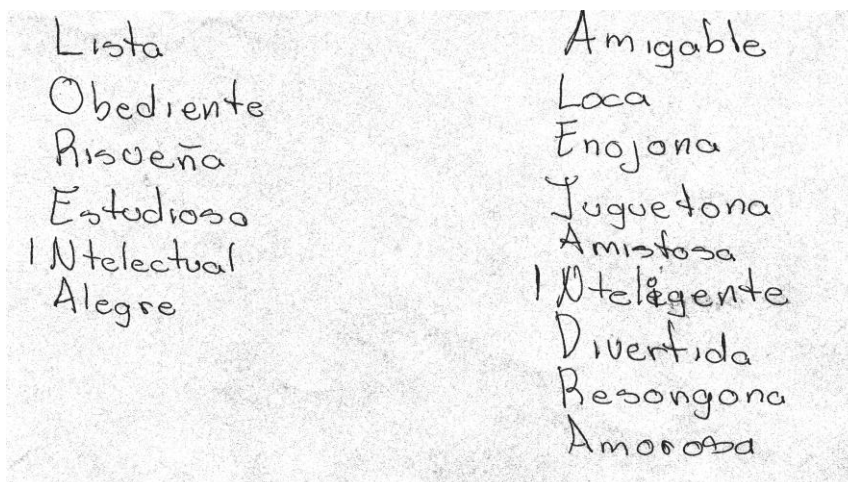 Lista
Obediente
Risueña
Estudiosa
INtelectual
Alegre
Amigable
Loca
Enojona
Juguetona
Amistosa
INteligente
Divertida
Resongona
Amorosa